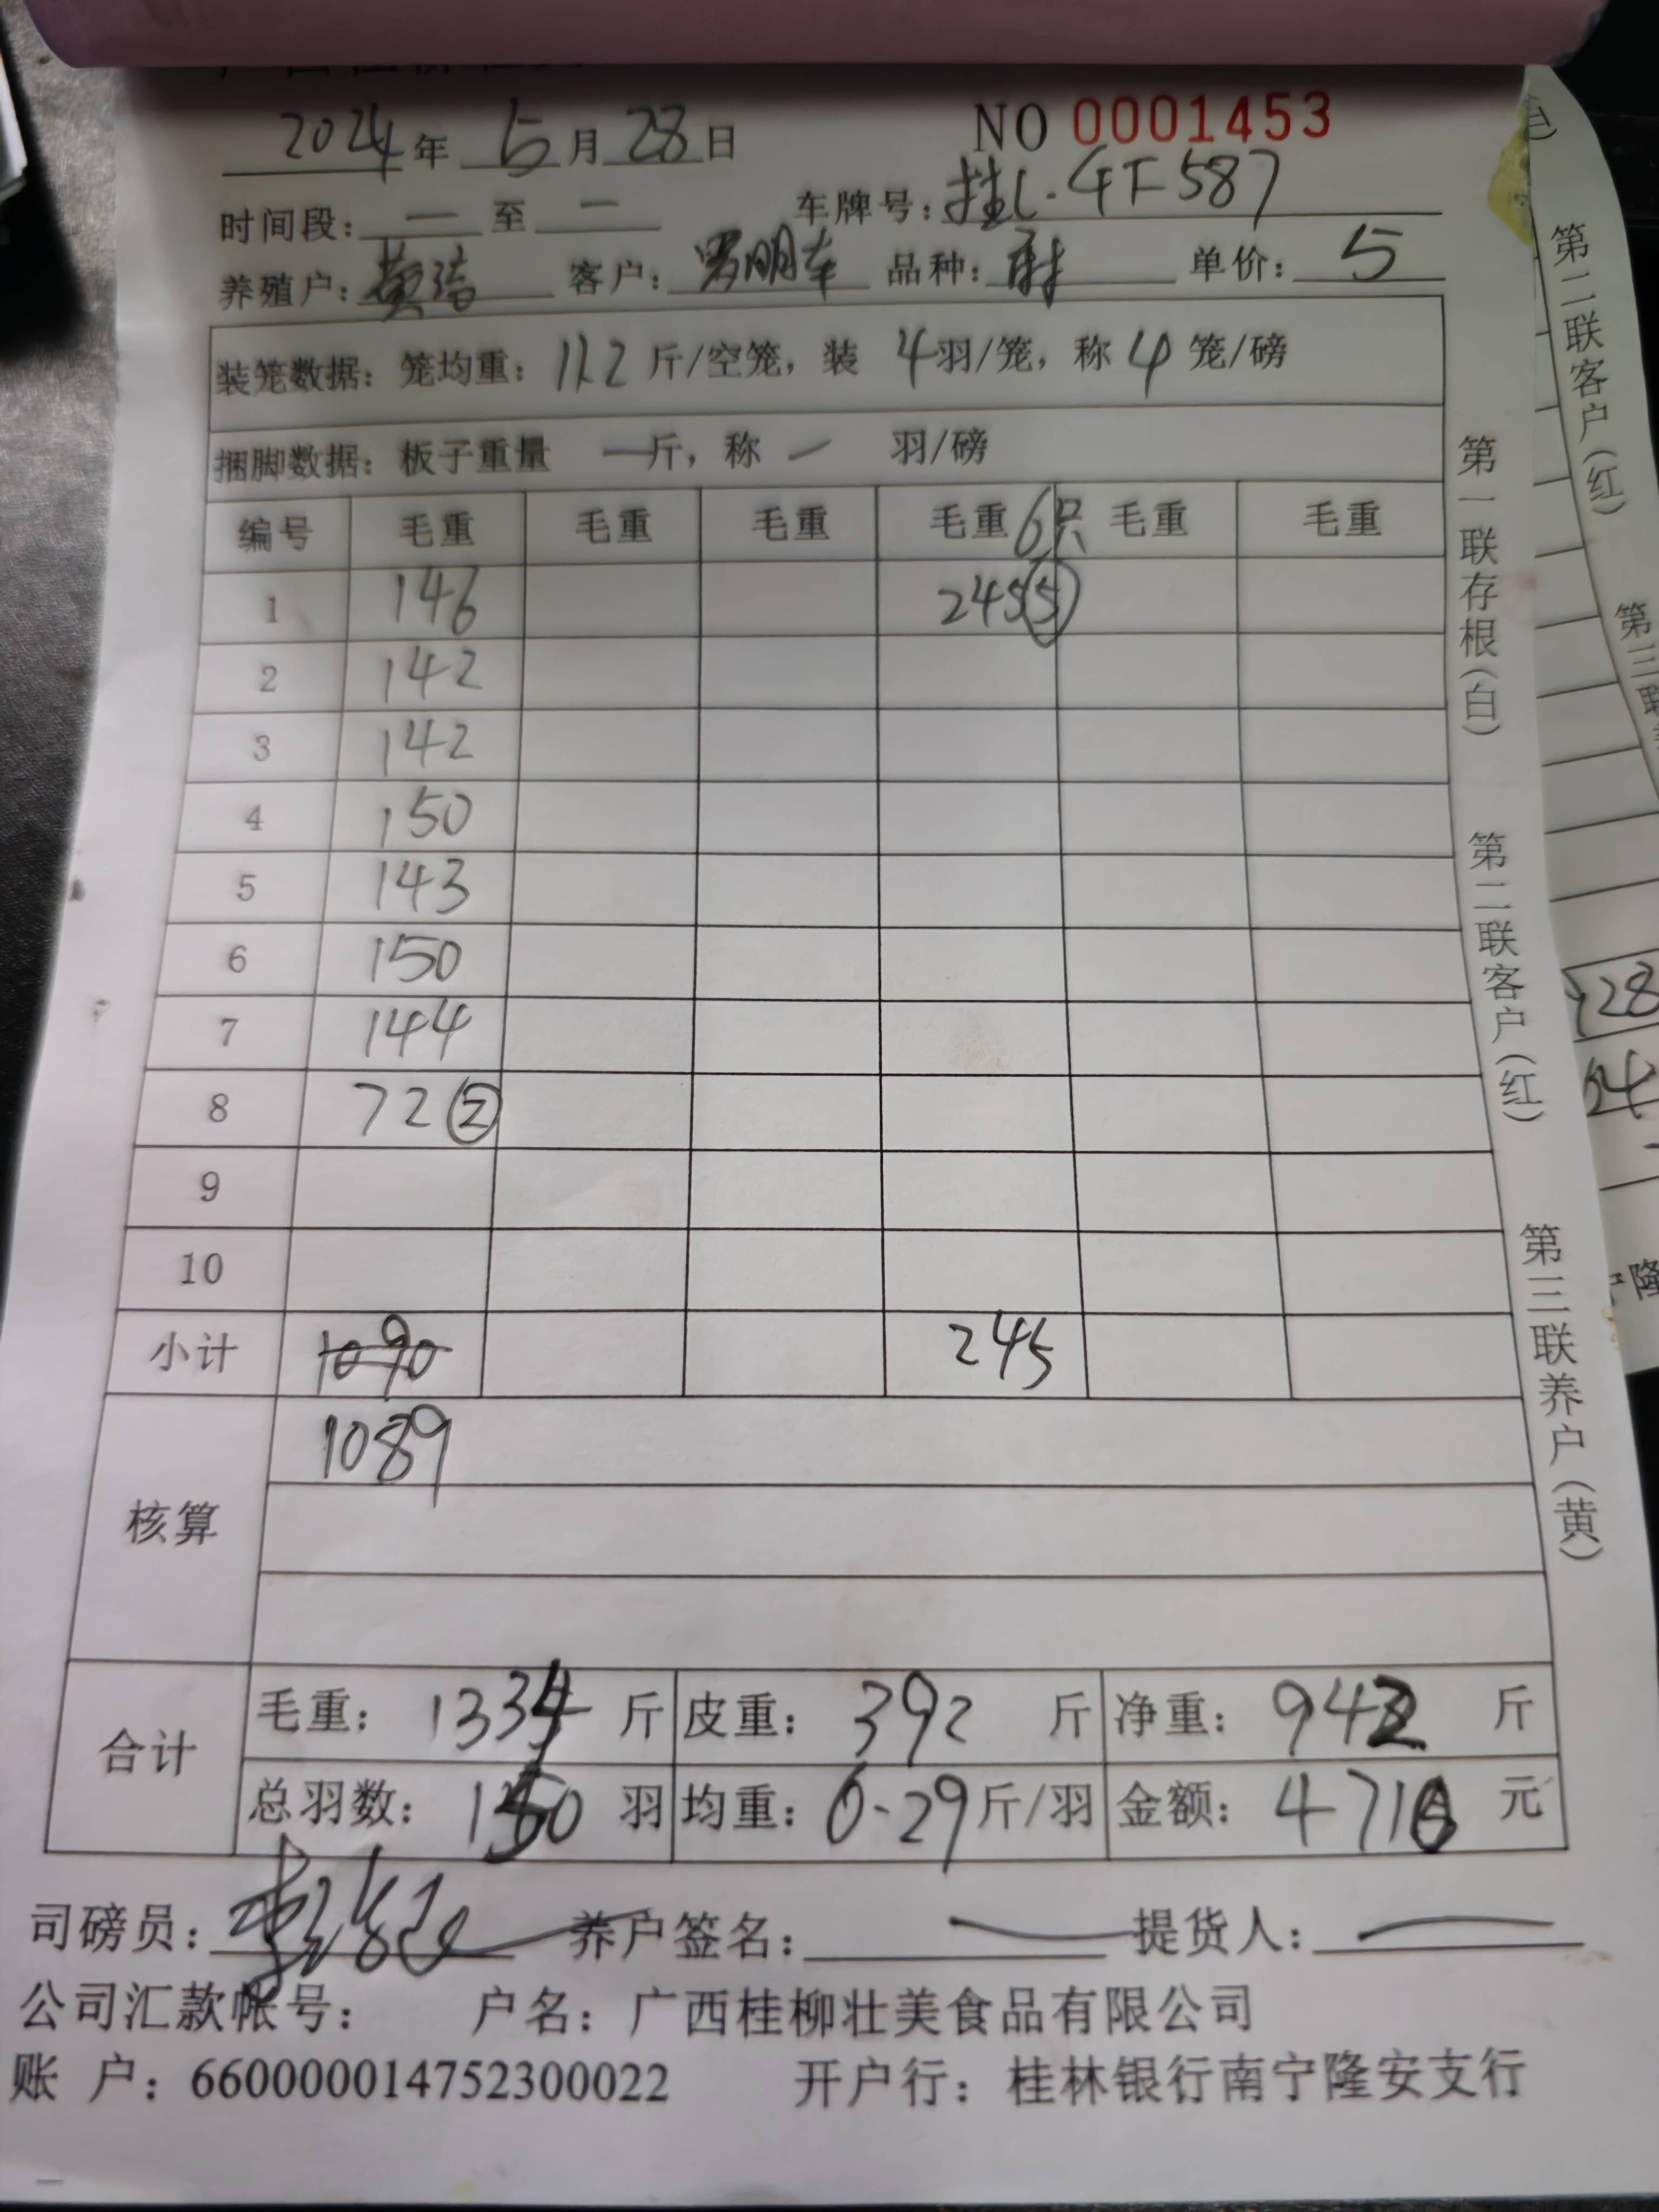 2024年 5月28日 NO 0001453
时间段: 一 至 一 车牌号: 桂L·4F587
养殖户: 黄 客户: 罗明车 品种: 单价: 5
装笼数据: 笼均重: 11.2 斤/空笼, 装 4羽/笼, 称 4 笼/磅
捆脚数据: 板子重量 一斤, 称 一 羽/磅
编号 毛重 毛重 毛重 毛重 6只 毛重 毛重
1 146 245⑤
2 142
3 142
4 150
5 143
6 150
7 144
8 72②
9
10
小计 1090 245
核算 1089
合计 毛重: 1334 斤 皮重: 392 斤 净重: 942 斤
总羽数: 150 羽 均重: 6.29斤/羽 金额: 4710 元
司磅员: 养户签名: 提货人:
公司汇款帐号: 户名: 广西桂柳壮美食品有限公司
账 户: 660000014752300022 开户行: 桂林银行南宁隆安支行
第一联存根(白) 第二联客户(红) 第三联养户(黄)
第二联客户(红)